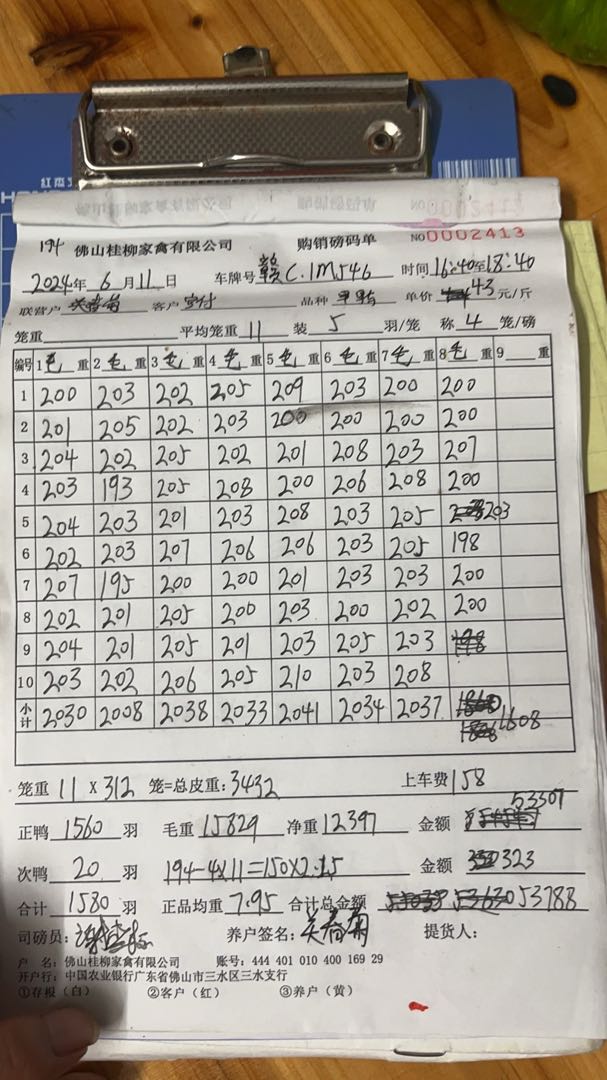 NO 0002413
194 佛山桂柳家禽有限公司 购销磅码单 NO 0002413
2024年 6月 11日 车牌号 赣C.1M546 时间 16:40至18:40
联营户 客户 品种 单价 43 元/斤
笼重 平均笼重 11 装 5 羽/笼 称 4 笼/磅
编号 1毛重 2毛重 3毛重 4毛重 5毛重 6毛重 7毛重 8毛重 9 重
1 200 203 202 205 209 203 200 200
2 201 205 202 203 200 200 200 200
3 204 202 205 202 201 208 203 207
4 203 193 205 208 200 206 208 200
5 204 203 201 203 208 203 205 203
6 202 203 207 206 206 203 205 198
7 207 195 200 200 201 203 203 200
8 202 201 205 200 203 200 202 200
9 204 201 205 201 203 205 203
10 203 202 206 205 210 203 208
小计 2030 2008 2038 2033 2041 2034 2037 1608
笼重 11 X 312 笼=总皮重: 3432 上车费 158
正鸭 1560 羽 毛重 15829 净重 12397 金额 53307
次鸭 20 羽 194-4X11=150X2.15 金额 323
合计 1580 羽 正品均重 7.95 合计总金额 53788
司磅员: 养户签名: 关春菊 提货人:
户 名: 佛山桂柳家禽有限公司 账号: 444 401 010 400 169 29
开户行: 中国农业银行广东省佛山市三水区三水支行
①存根（白） ②客户（红） ③养户（黄）